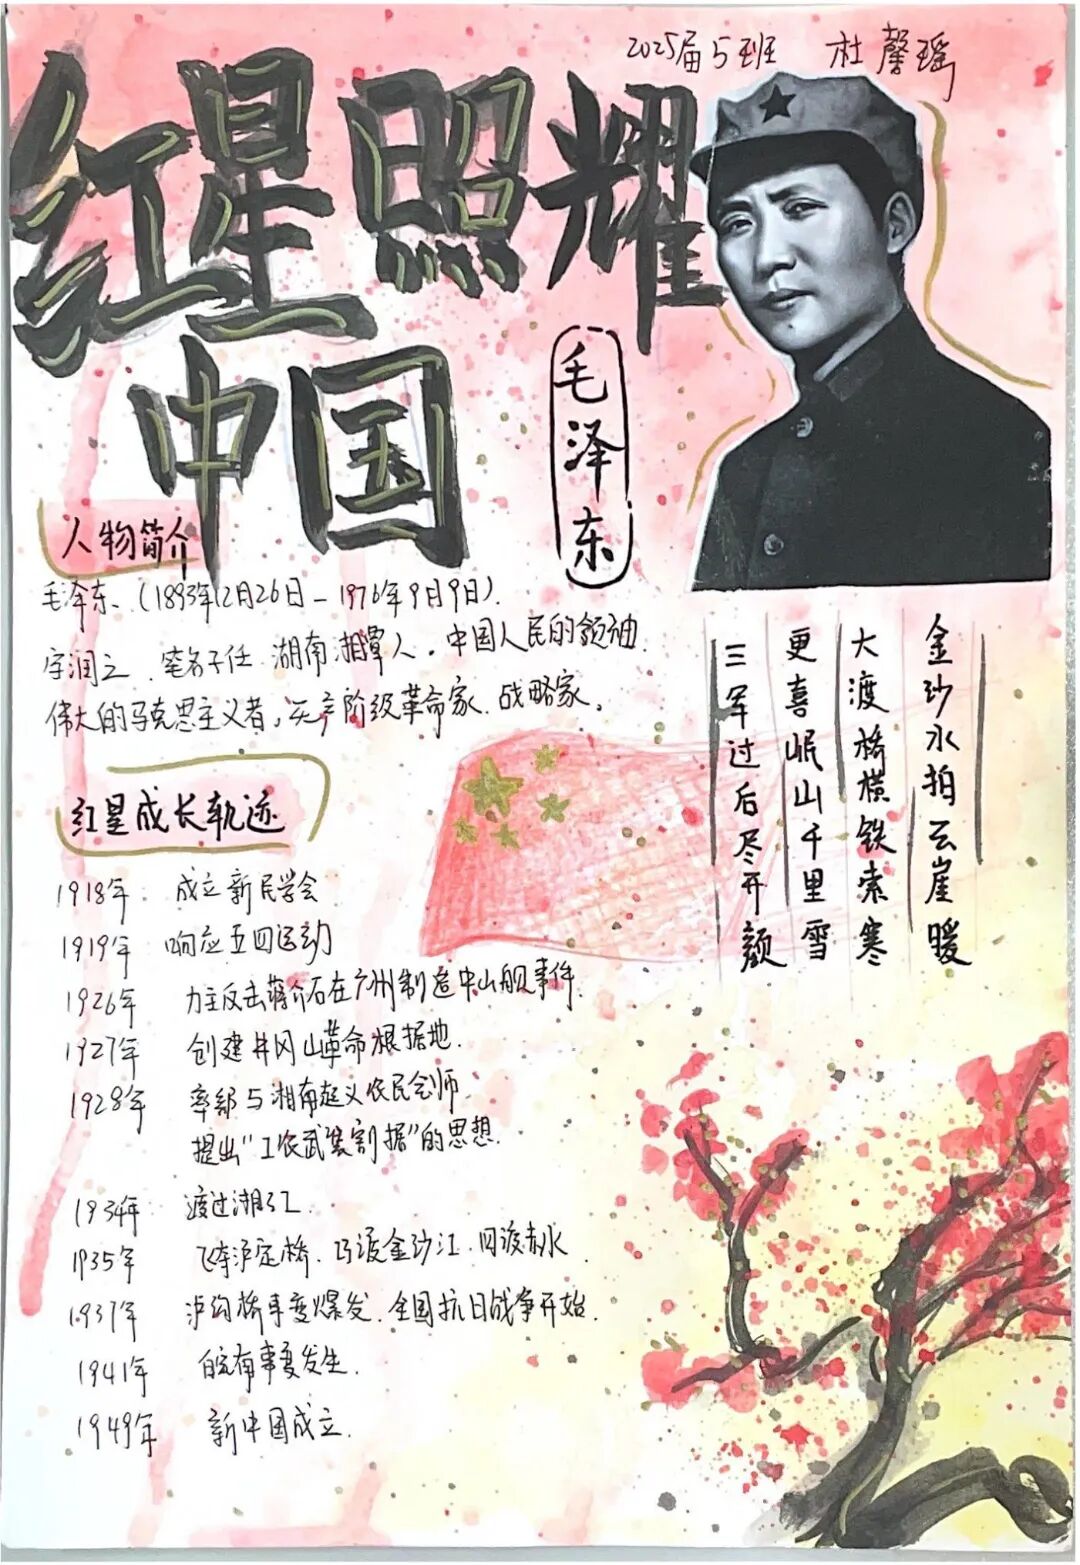 2025届5班 杜馨瑶
红星照耀
中国
毛泽东
人物简介
毛泽东、(1893年12月26日-1976年9月9日).
字润之.笔名子任.湖南湘潭人。中国人民的领袖.
伟大的马克思主义者,无产阶级革命家.战略家。
金沙水拍云崖暖
大渡桥横铁索寒
更喜岷山千里雪
三军过后尽开颜
红星成长轨迹
1918年 成立新民学会
1919年 响应五四运动
1926年 力主反击蒋介石在广州制造中山舰事件.
1927年 创建井冈山革命根据地.
1928年 率部与湘南起义农民会师
提出“工农武装割据”的思想.
1934年 渡过湘江
1935年 飞夺泸定桥.巧渡金沙江.四渡赤水
1937年 泸沟桥事变爆发.全国抗日战争开始.
1941年 皖南事变发生.
1949年 新中国成立.